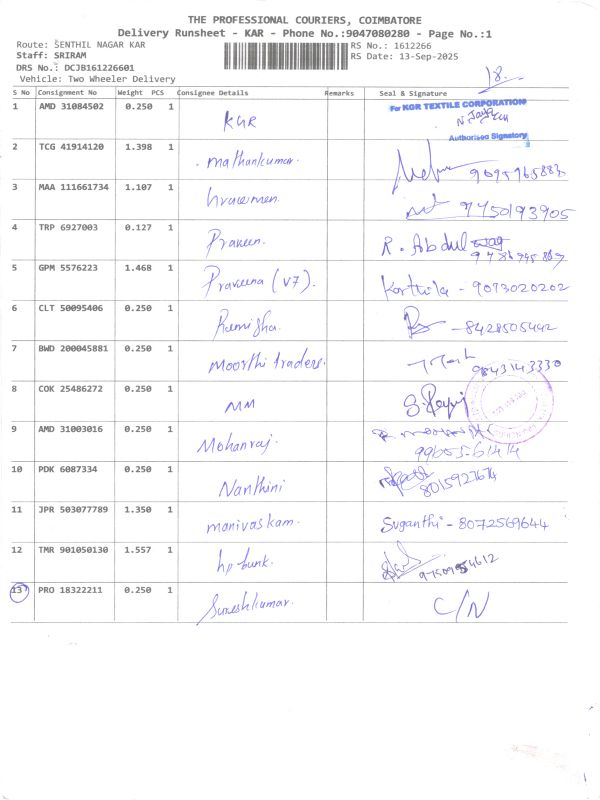 THE PROFESSIONAL COURIERS, COIMBATORE
Delivery Runsheet - KAR - Phone No.:9047080280 - Page No.:1
Route: SENTHIL NAGAR KAR RS No.: 1612266
Staff: SRIRAM RS Date: 13-Sep-2025
DRS No.: DCJB161226601
Vehicle: Two Wheeler Delivery 18.
S No Consignment No Weight PCS Consignee Details Remarks Seal & Signature
1 AMD 31084502 0.250 1 KGR For KGR TEXTILE CORPORATION
Authorised Signatory
2 TCG 41914120 1.398 1 mathankumar.
3 MAA 111661734 1.107 1 9750193905
4 TRP 6927003 0.127 1 Praveen. R. Abdul
5 GPM 5576223 1.468 1 Praveena (V7). Karthika - 9073020202
6 CLT 50095406 0.250 1 Ramisha. - 8428505442
7 BWD 200045881 0.250 1 Moorthi traders. 9843143330
8 COK 25486272 0.250 1 MM
9 AMD 31003016 0.250 1 Mohanraj.
9965561414
10 PDK 6087334 0.250 1 Nanthini 8015927674
11 JPR 503077789 1.350 1 manivaskam. Suganthi - 8072569644
12 TMR 901050130 1.557 1 hp bunk.
13 PRO 18322211 0.250 1 Sureshkumar. C/N